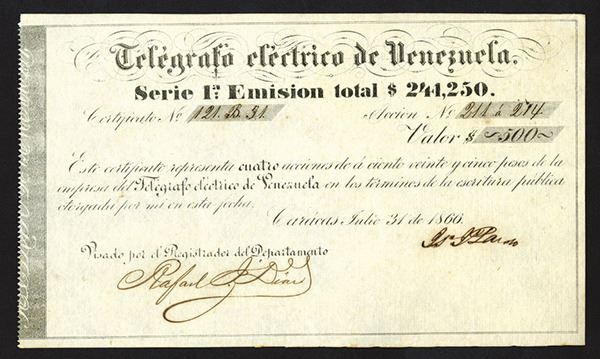 Telégrafo eléctrico de Venezuela.
Serie 1ª. Emision total $ 241,250.
Certificado Nº 121. B. 31. Accion Nº 211 á 214
Valor $ ~500~
Este certificado representa cuatro acciones de á ciento veinte y cinco pesos de la
empresa del Telégrafo eléctrico de Venezuela en los términos de la escritura pública
otorgada por mi en esta fecha.
Carácas Julio 31 de 1866.
Visado por el Registrador del Departamento
Rafael